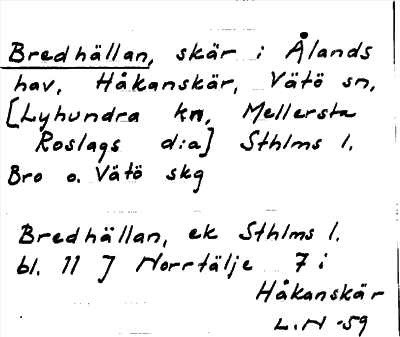 Bredhällan, skär i Ålands
hav, Håkanskär, Vätö sn,
[Lyhundra kn, Mellersta
Roslags d:a] Sthlms l.
Bro o. Vätö skg
Bredhällan, ek Sthlms l.
bl. 11 J Norrtälje 7 i
Håkanskär
L.N -59